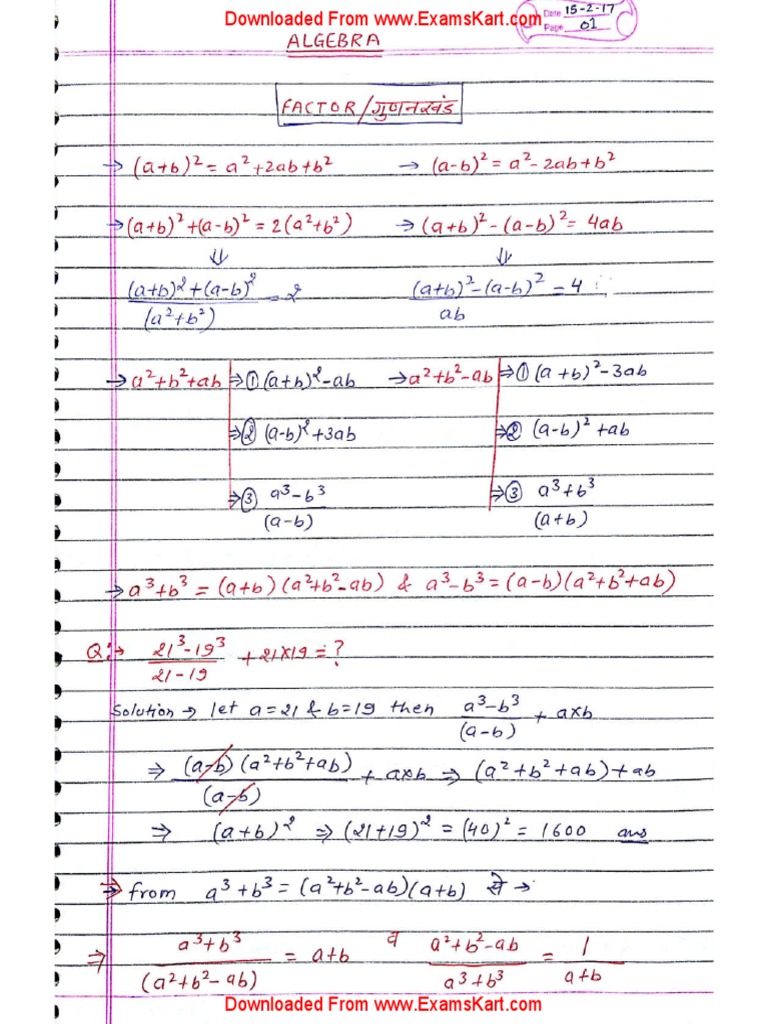 Downloaded From www.ExamsKart.com
Date 15-2-17
Page 01
ALGEBRA
FACTOR/गुणनखंड
→ (a+b)² = a²+2ab+b² → (a-b)² = a²-2ab+b²
→ (a+b)²+(a-b)² = 2(a²+b²) → (a+b)²-(a-b)² = 4ab
⇓ ⇓
(a+b)²+(a-b)²/(a²+b²) = 2 (a+b)²-(a-b)²/ab = 4
→ a²+b²+ab ⇒ ① (a+b)²-ab → a²+b²-ab ⇒ ① (a+b)²-3ab
⇒ ② (a-b)²+3ab ⇒ ② (a-b)²+ab
⇒ ③ a³-b³/(a-b) ⇒ ③ a³+b³/(a+b)
→ a³+b³ = (a+b)(a²+b²-ab) & a³-b³ = (a-b)(a²+b²+ab)
Q:→ 21³-19³/21-19 + 21×19 = ?
Solution → let a=21 & b=19 then a³-b³/(a-b) + a×b
⇒ (a-b)(a²+b²+ab)/(a-b) + a×b ⇒ (a²+b²+ab)+ab
⇒ (a+b)² ⇒ (21+19)² = (40)² = 1600 ans
⇒ from a³+b³ = (a²+b²-ab)(a+b) से →
⇒ a³+b³/(a²+b²-ab) = a+b व a²+b²-ab/a³+b³ = 1/a+b
Downloaded From www.ExamsKart.com